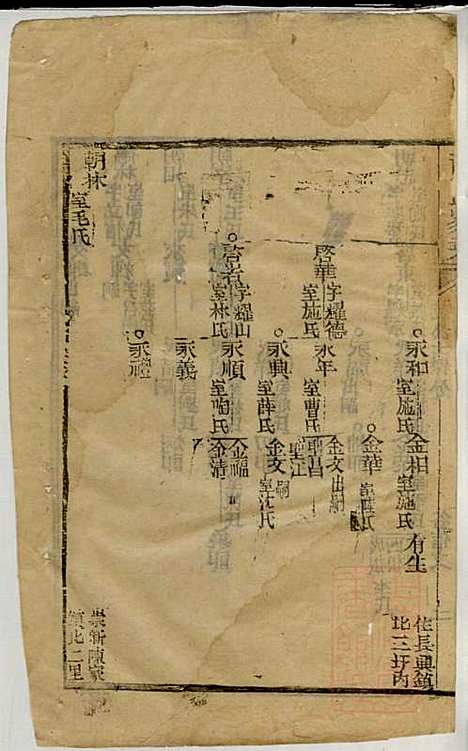 永和室施氏
金相室施氏
有生
住長興鎮
北三圩内
金華
啓華字耀德
室施氏
永年
室曹氏
金文出嗣
聖昌
聖江
永興
室薛氏
金文嗣
室沈氏
字耀山
室林氏
永順
室陶氏
金福
金清
永義
永禮
朝林
室毛氏
崇新陳家
鎮北二里